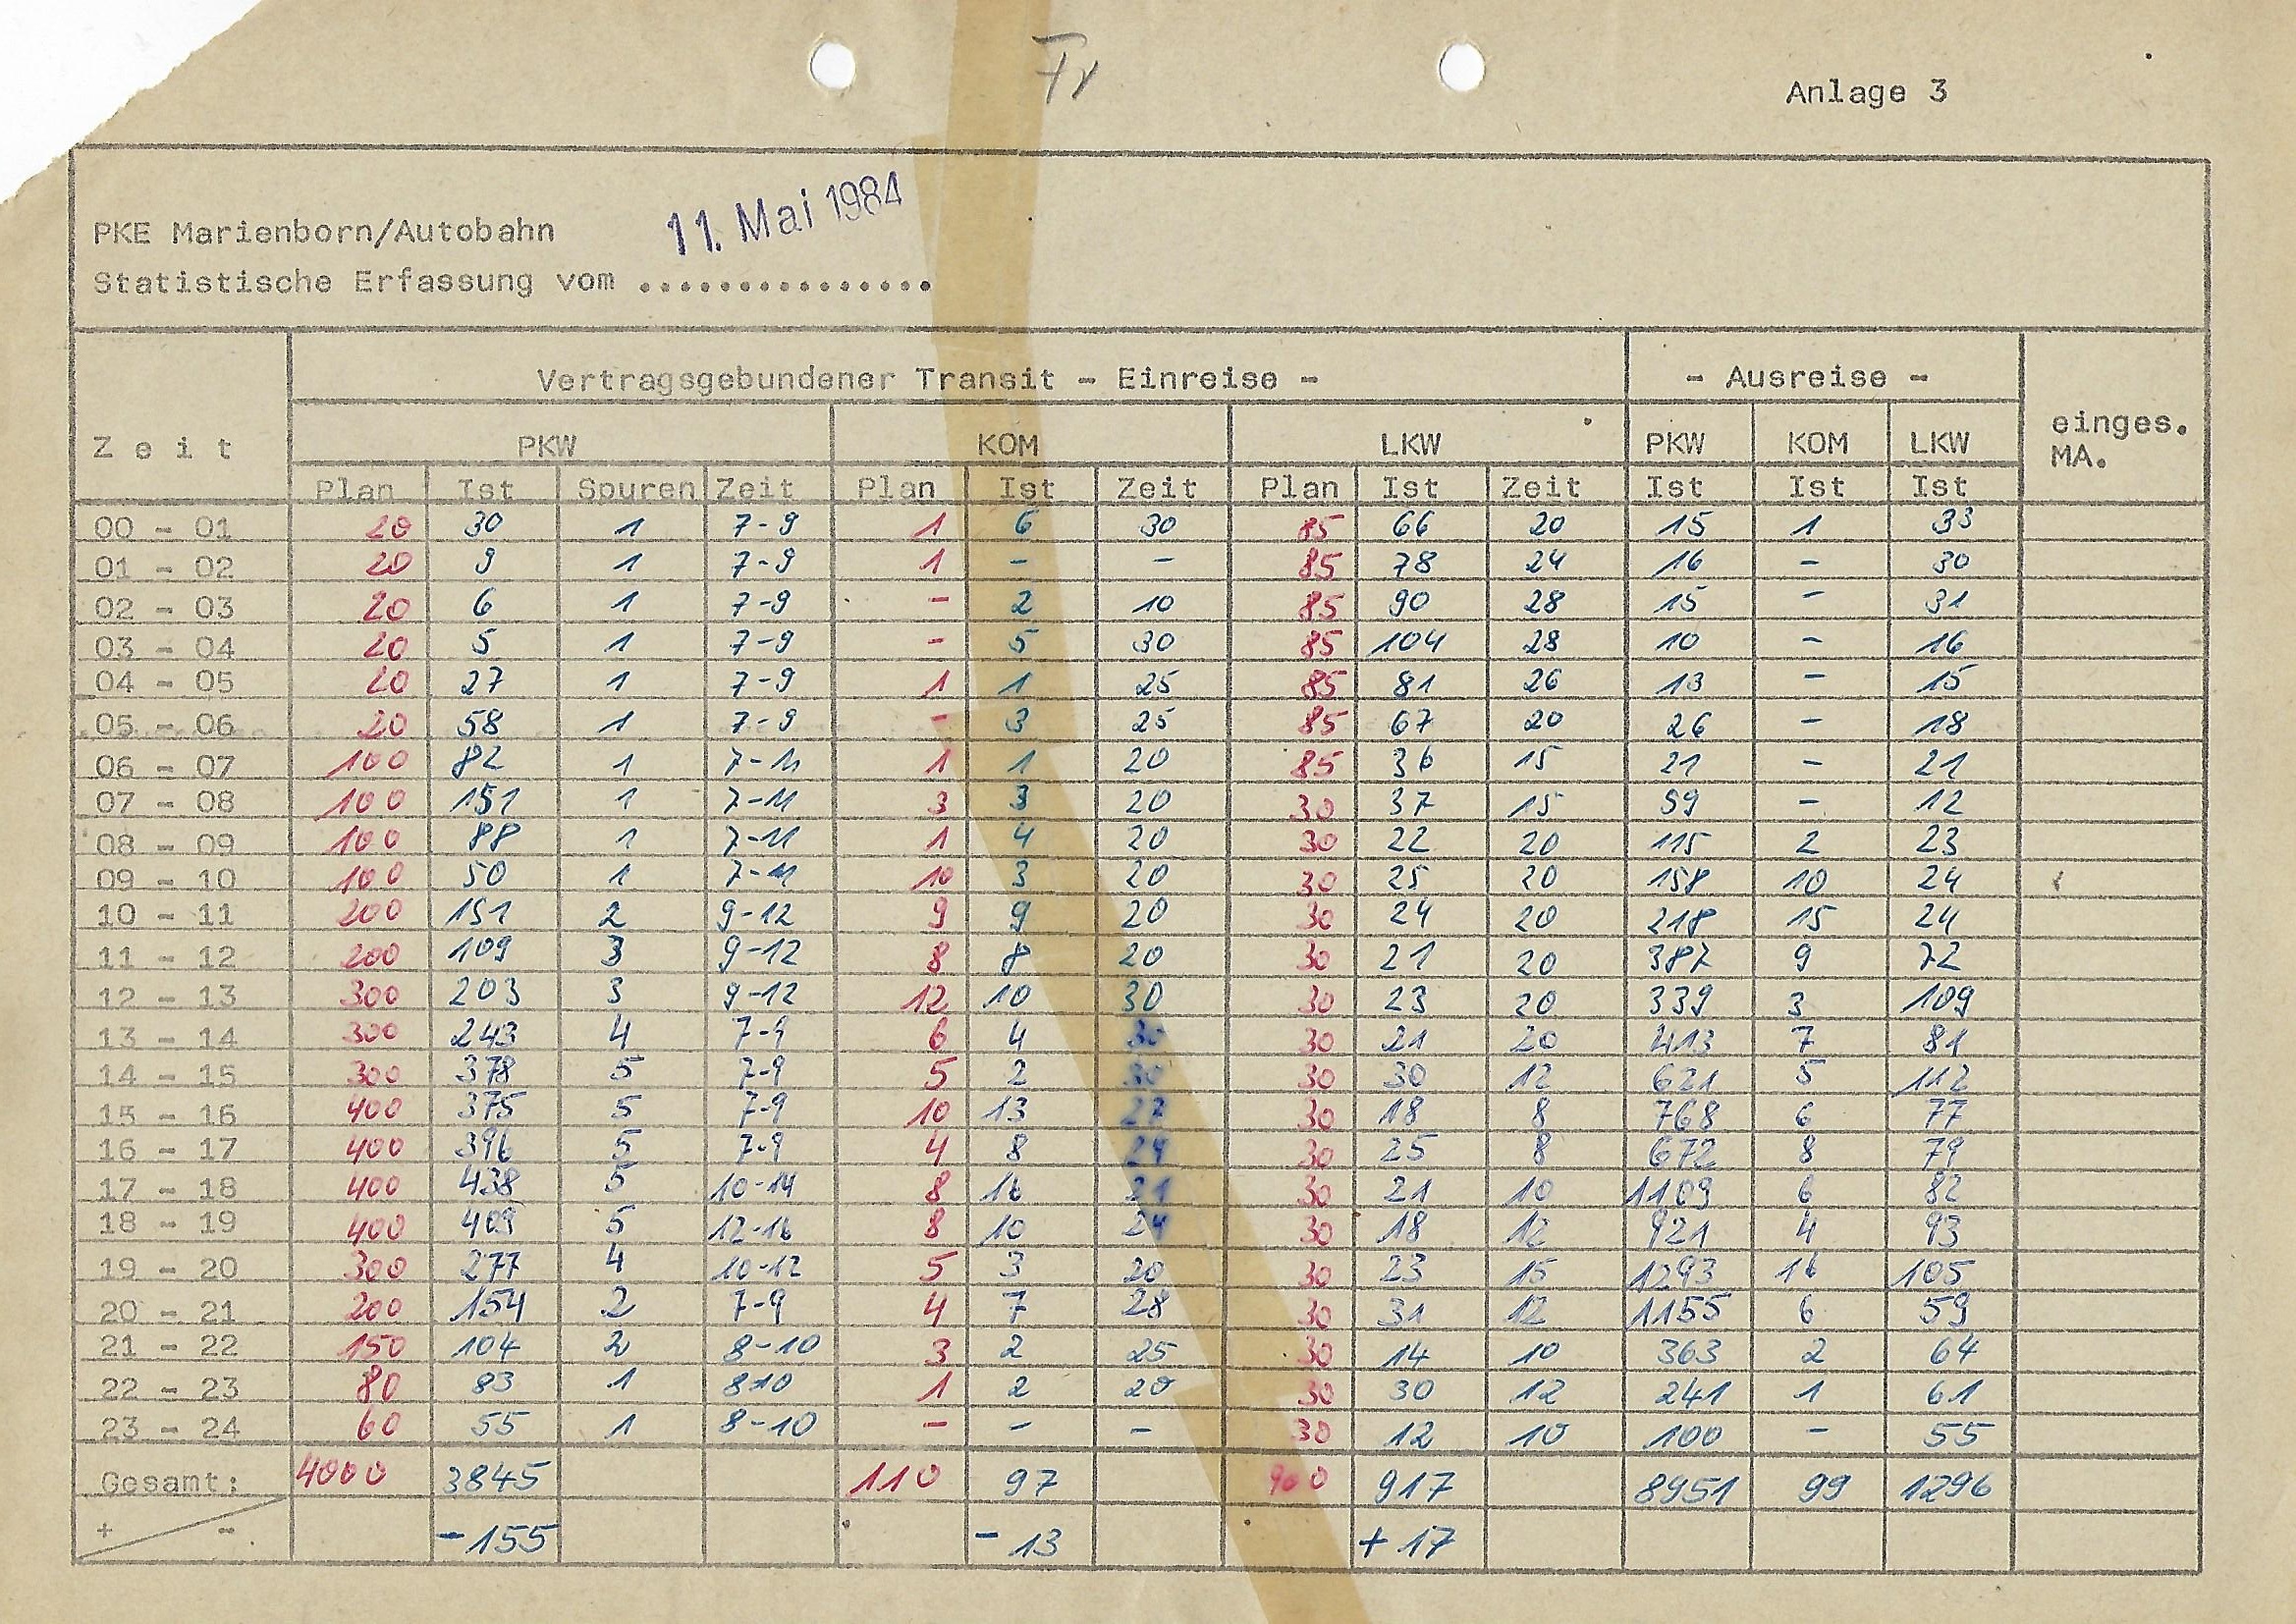 Fr
Anlage 3
11. Mai 1984
PKE Marienborn/Autobahn
Statistische Erfassung vom ...............
Vertragsgebundener Transit - Einreise - - Ausreise -
Zeit PKW KOM LKW PKW KOM LKW einges. MA.
Plan Ist Spuren Zeit Plan Ist Zeit Plan Ist Zeit Ist Ist Ist
00 - 01 20 30 1 7-9 1 6 30 85 66 20 15 1 33
01 - 02 20 9 1 7-9 1 - - 85 78 24 16 - 30
02 - 03 20 6 1 7-9 - 2 10 85 90 28 15 - 31
03 - 04 20 5 1 7-9 - 5 30 85 104 28 10 - 16
04 - 05 20 27 1 7-9 1 1 25 85 81 26 13 - 15
05 - 06 20 58 1 7-9 - 3 25 85 67 20 26 - 18
06 - 07 100 82 1 7-11 1 1 20 85 36 15 21 - 21
07 - 08 100 151 1 7-11 3 3 20 30 37 15 59 - 12
08 - 09 100 88 1 7-11 1 4 20 30 22 20 115 2 23
09 - 10 100 50 1 7-11 10 3 20 30 25 20 158 10 24
10 - 11 200 151 2 9-12 9 9 20 30 24 20 218 15 24
11 - 12 200 109 3 9-12 8 8 20 30 21 20 387 9 72
12 - 13 300 203 3 9-12 12 10 30 30 23 20 339 3 109
13 - 14 300 243 4 7-9 6 4 30 30 21 20 413 7 81
14 - 15 300 378 5 7-9 5 2 30 30 30 12 621 5 112
15 - 16 400 375 5 7-9 10 13 27 30 18 8 768 6 77
16 - 17 400 396 5 7-9 4 8 24 30 25 8 672 8 79
17 - 18 400 438 5 10-14 8 16 21 30 21 10 1109 6 82
18 - 19 400 409 5 12-16 8 10 24 30 18 12 921 4 93
19 - 20 300 277 4 10-12 5 3 20 30 23 15 1293 16 105
20 - 21 200 154 2 7-9 4 7 28 30 31 12 1155 6 59
21 - 22 150 104 2 8-10 3 2 25 30 14 10 363 2 64
22 - 23 80 83 1 8-10 1 2 20 30 30 12 241 1 61
23 - 24 60 55 1 8-10 - - - 30 12 10 100 - 55
Gesamt: 4000 3845 110 97 900 917 8951 99 1296
+ - -155 -13 +17